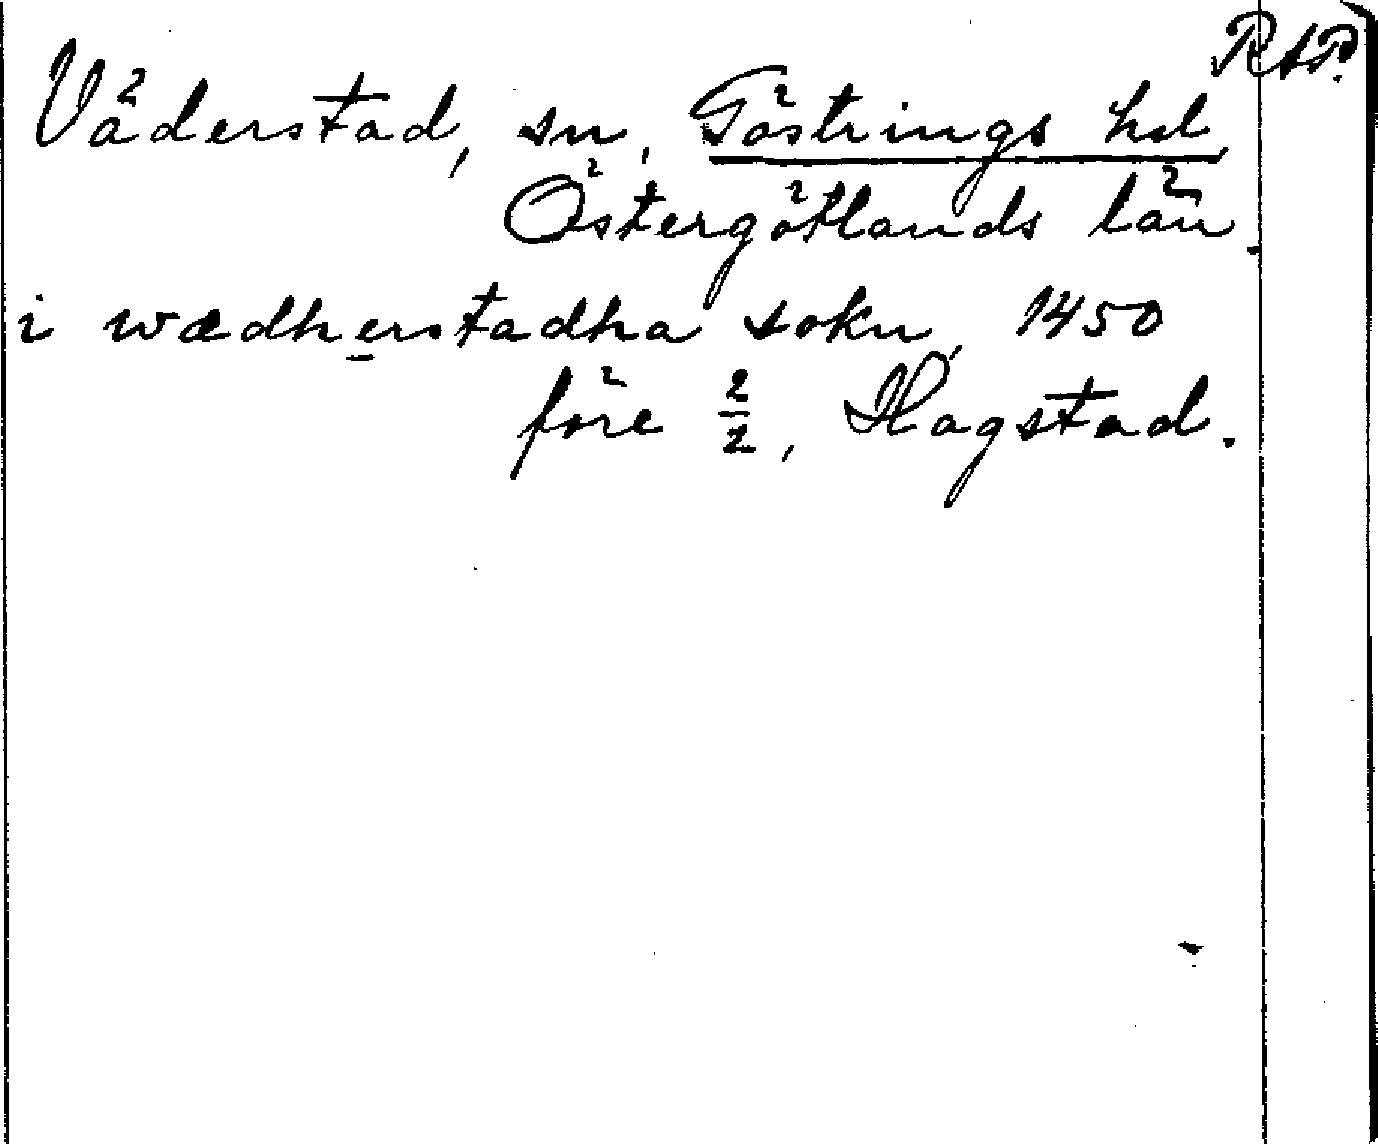 RAP.
Väderstad, sn, Göstrings hd,
Östergötlands län.
i wædherstadha sokn, 1450
före 2/2, Hogstad.